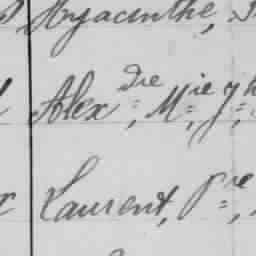 Hyacinthe,
Alexdre, Mie, J
Laurent, Pre,